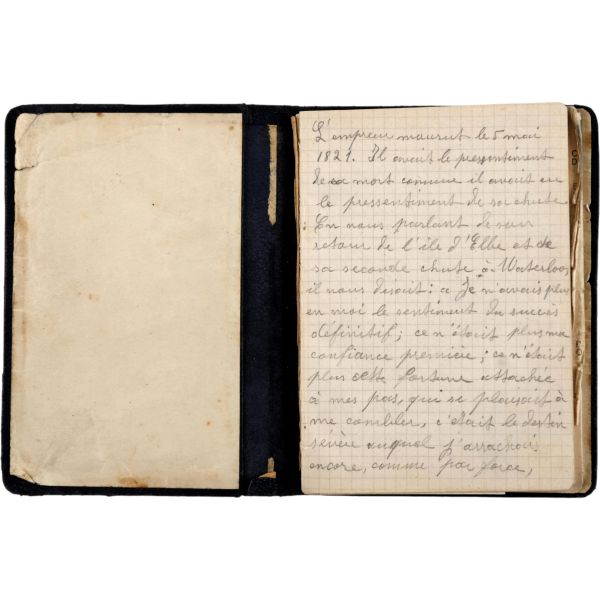 L'empreur mourut le 5 mai
1821. Il avait le pressentiment
de sa mort comme il avait eu
le pressentiment de sa chute.
En nous parlant de son
retour de l'ile d'Elbe et de
sa seconde chute à Waterloo,
il nous disait: « Je n'avais plus
en moi le sentiment du succès
définitif; ce n'était plus ma
confiance première; ce n'était
plus cette fortune attachée
à mes pas, qui se plaisait à
me combler, c'était le destin
sévère auquel j'arrachais
encore, comme par force,